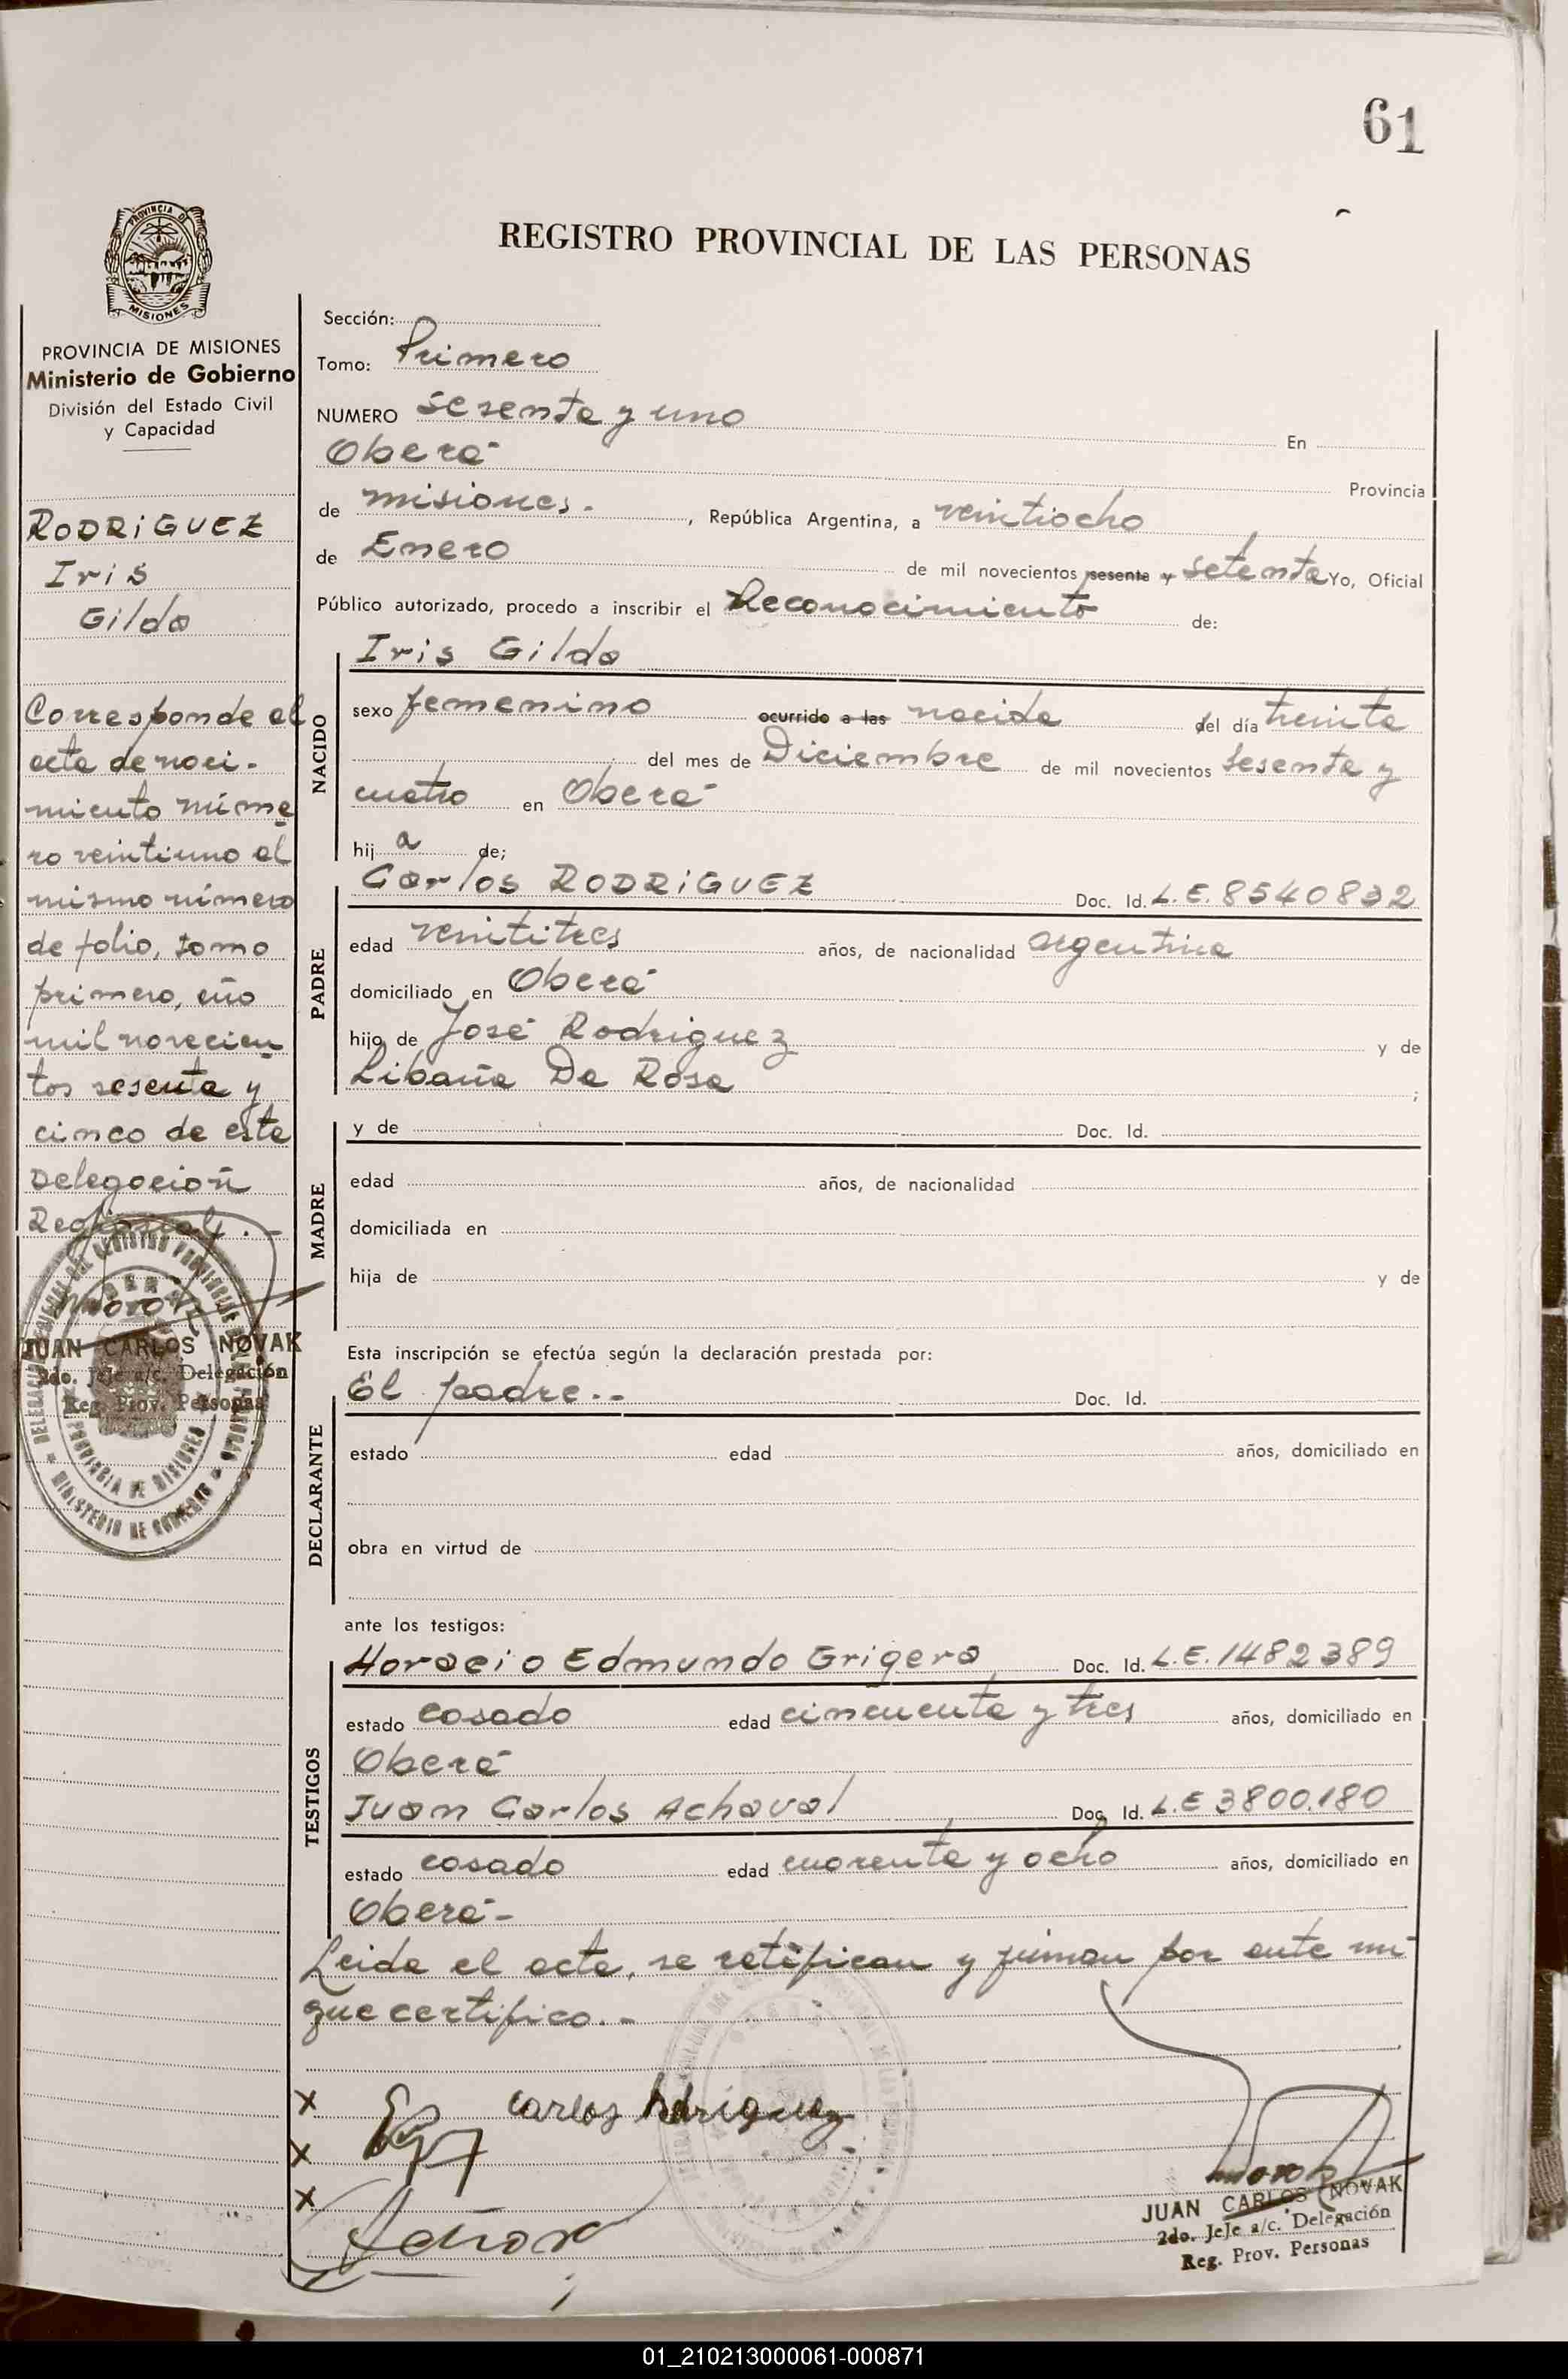 61
PROVINCIA DE
MISIONES
REGISTRO PROVINCIAL DE LAS PERSONAS
PROVINCIA DE MISIONES
Ministerio de Gobierno
División del Estado Civil
y Capacidad
RODRIGUEZ
Iris
Gilda
Corresponde al
acta de naci-
miento núme
ro veintiuno al
mismo número
de folio, tomo
primero, año
mil novecien
tos sesenta y
cinco de esta
Delegación
Regional.-
JUAN CARLOS NOVAK
2do. Jefe a/c. Delegación
Reg. Prov. Personas
PROVINCIA DE MISIONES
MINISTERIO DE GOBIERNO
Sección:
Tomo: Primero
NUMERO sesenta y uno En
Oberá Provincia
de misiones.-, República Argentina, a veintiocho
de Enero de mil novecientos sesenta y setenta Yo, Oficial
Público autorizado, procedo a inscribir el Reconocimiento de:
Iris Gilda
NACIDO
sexo femenino ocurrido a las nacida del día treinta
del mes de Diciembre de mil novecientos sesenta y
cuatro en Oberá
hij a de;
Carlos RODRIGUEZ Doc. Id. L.E. 8540832
PADRE
edad veintitres años, de nacionalidad argentina
domiciliado en Oberá
hijo de José Rodriguez y de
Libaña Da Rosa ;
MADRE
y de Doc. Id.
edad años, de nacionalidad
domiciliada en
hija de y de
Esta inscripción se efectúa según la declaración prestada por:
DECLARANTE
El padre.-- Doc. Id.
estado edad años, domiciliado en
obra en virtud de
ante los testigos:
TESTIGOS
Horacio Edmundo Grigera Doc. Id. L.E. 1482389
estado casado edad cincuenta y tres años, domiciliado en
Oberá
Juan Carlos Achaval Doc. Id. L.E 3800.180
estado casado edad cuarenta y ocho años, domiciliado en
Oberá-
Leida el acta, se ratifican y firman por ante mi
que certifico.--
x carlos Rodriguez
x
x
JUAN CARLOS NOVAK
2do. Jefe a/c. Delegación
Reg. Prov. Personas
01_210213000061-000871